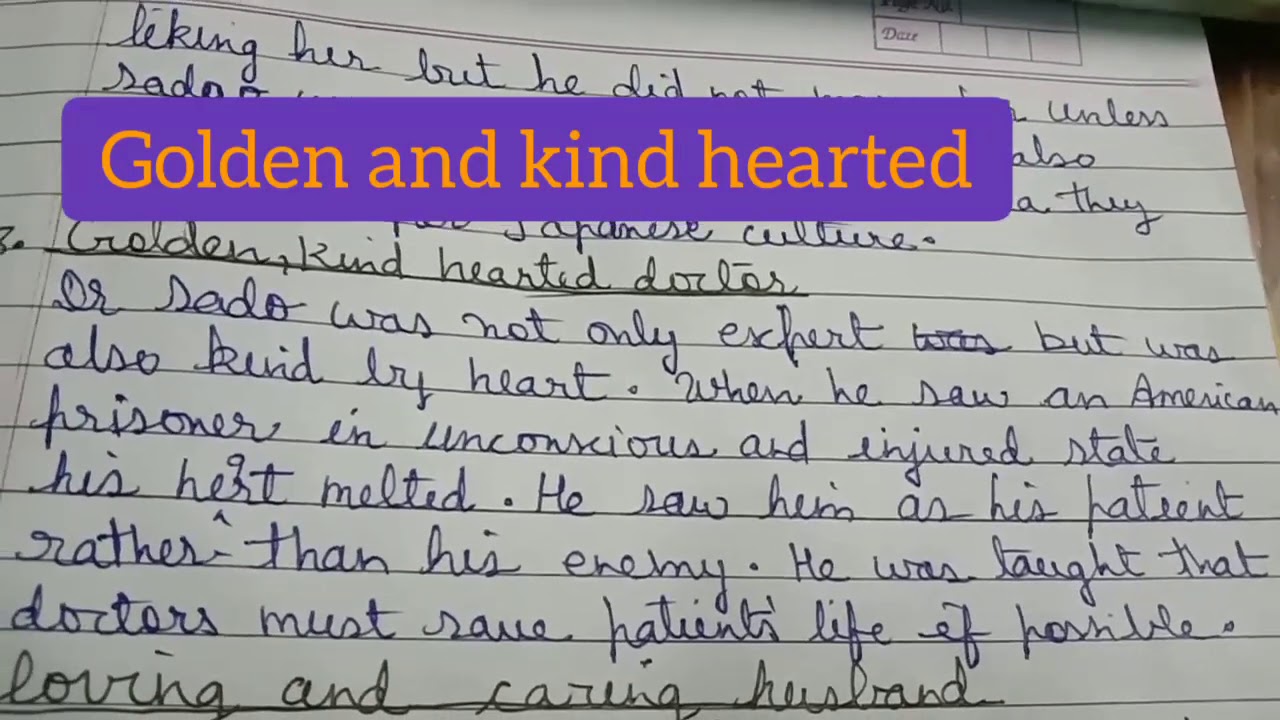 Page No.
Date
liking her but he did not unless
sado
also
Golden and kind hearted
a they
Japanese culture.
3. Golden, kind hearted doctor
Dr sado was not only expert but was
also kind by heart. When he saw an American
prisoner in unconscious and injured state
his heart melted. He saw him as his patient
rather than his enemy. He was taught that
doctors must save patient's life if possible.
loving and caring husband